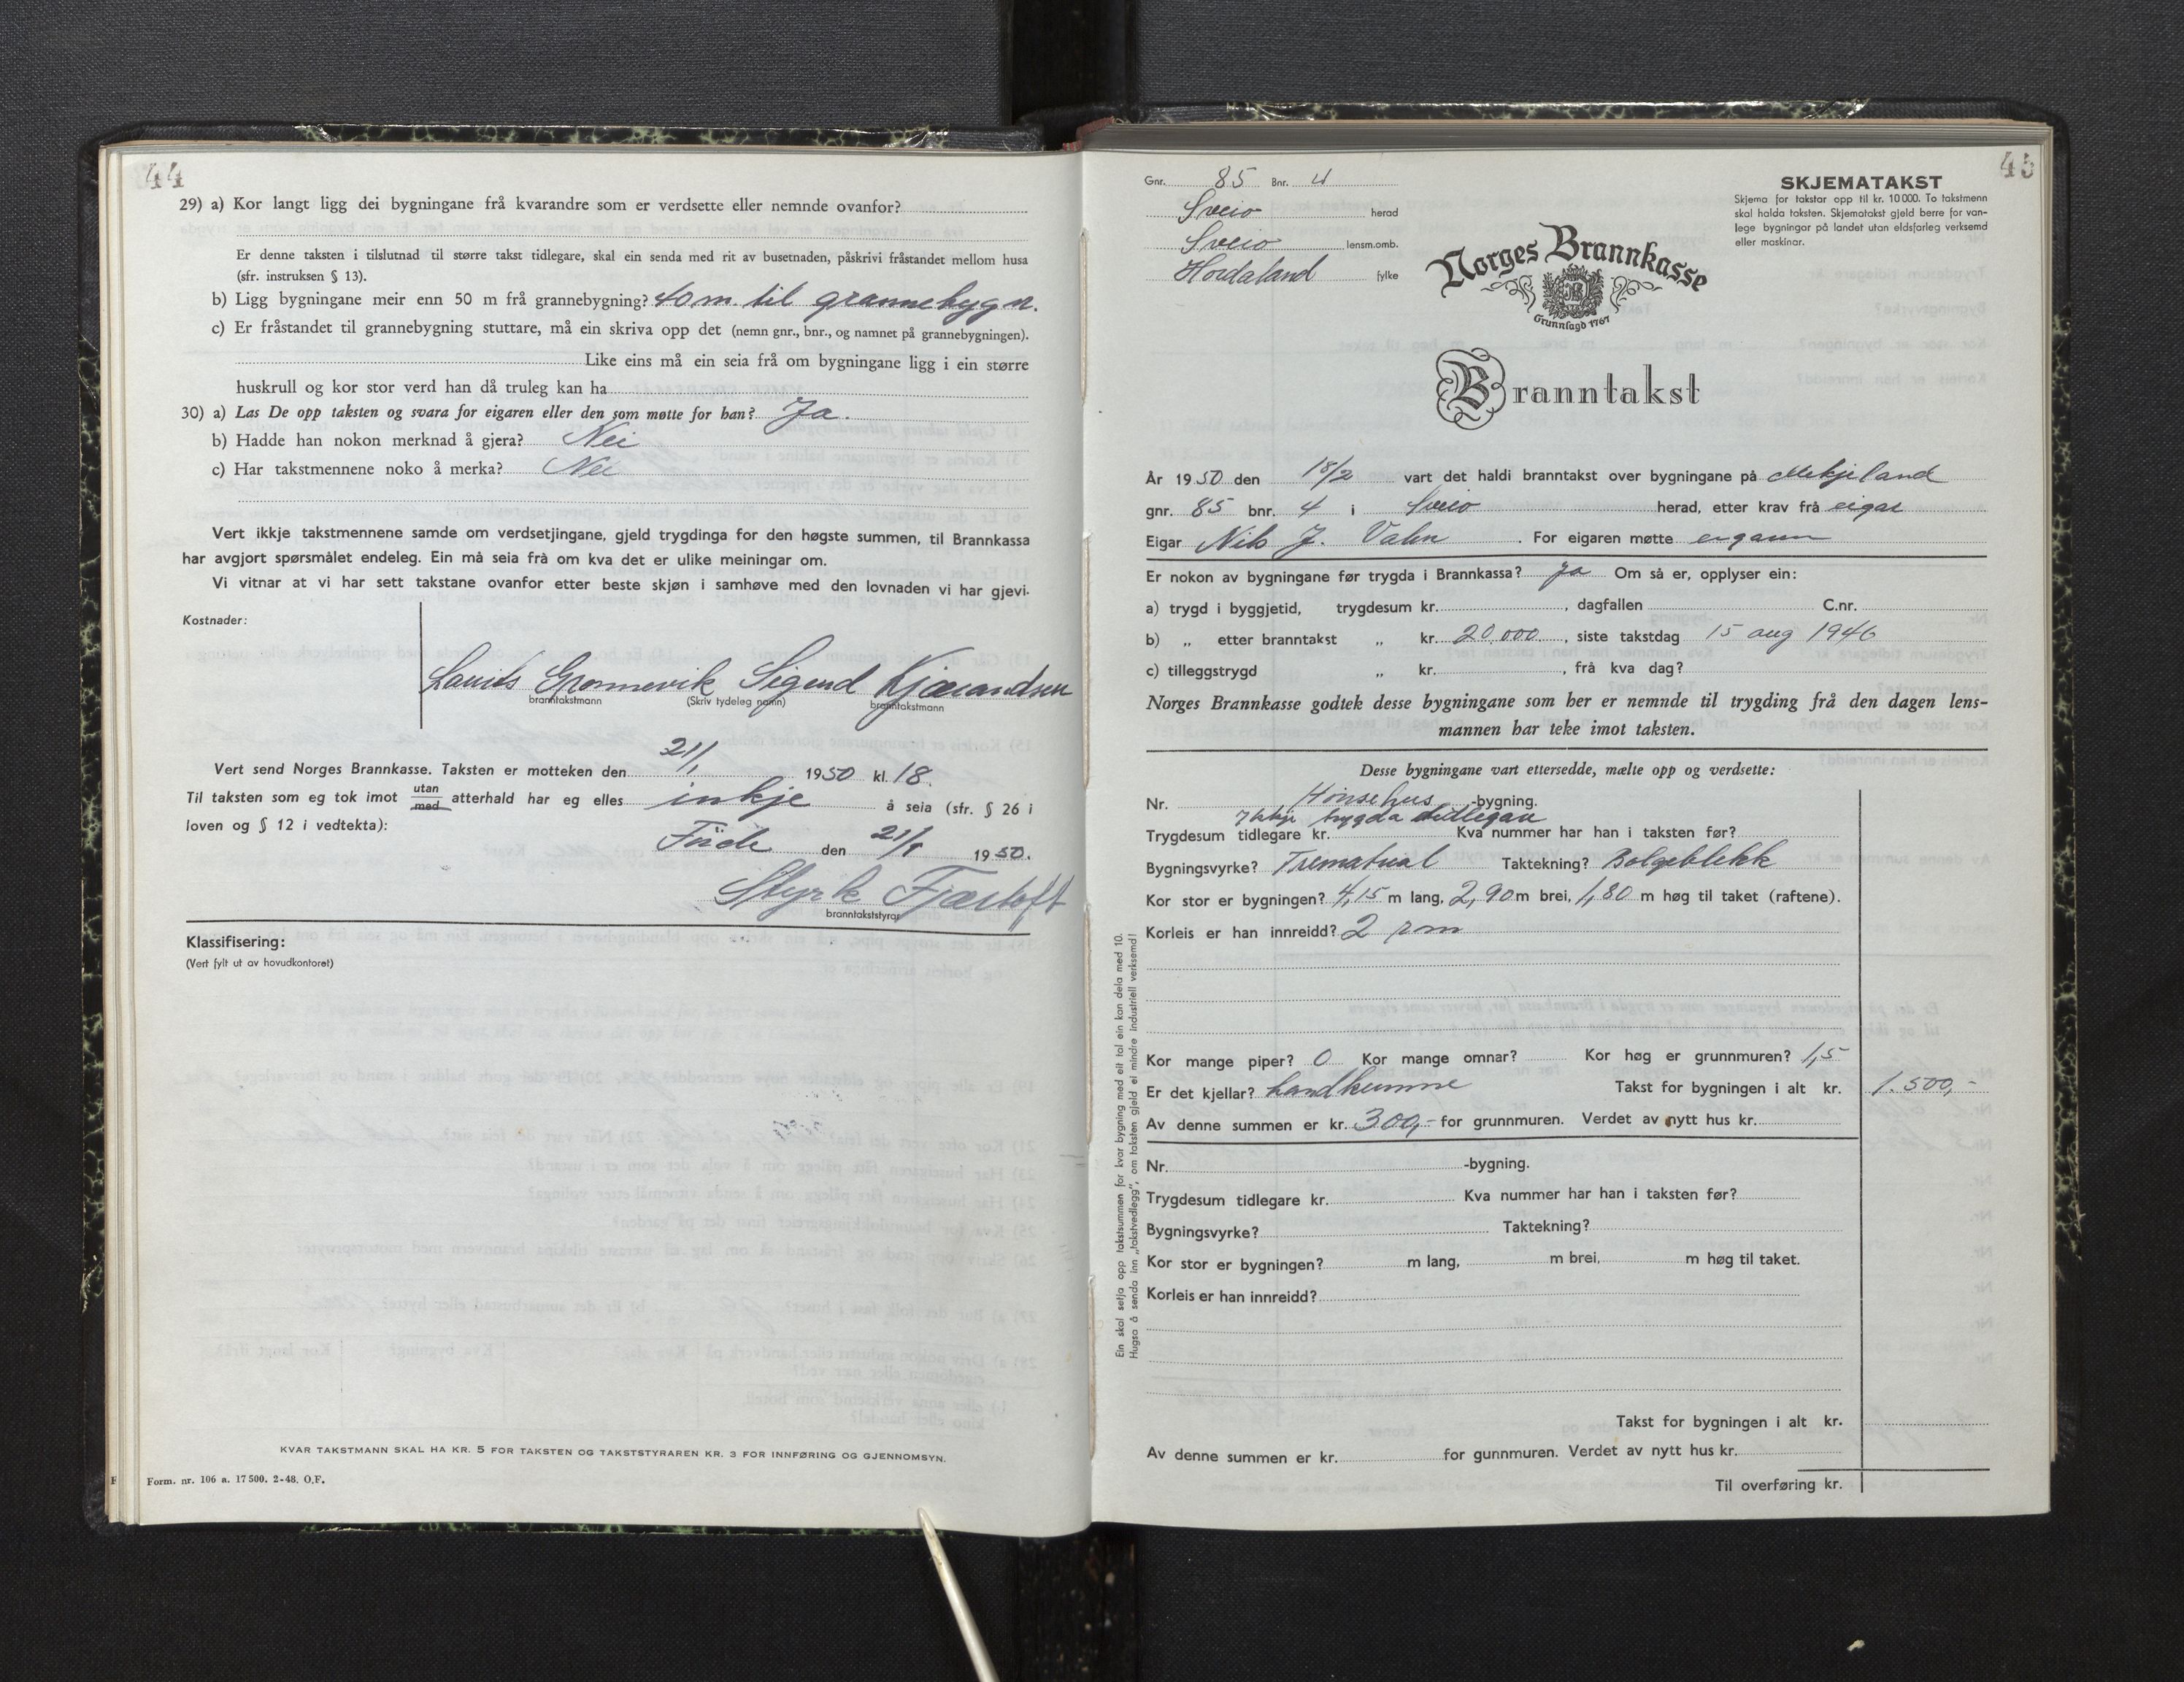 44
29) a) Kor langt ligg dei bygningane frå kvarandre som er verdsette eller nemnde ovanfor?
Er denne taksten i tilslutnad til større takst tidlegare, skal ein senda med rit av busetnaden, påskrivi fråstandet mellom husa
(sfr. instruksen § 13).
b) Ligg bygningane meir enn 50 m frå grannebygning? 40 m. til grannebygn.
c) Er fråstandet til grannebygning stuttare, må ein skriva opp det (nemn gnr., bnr., og namnet på grannebygningen).
Like eins må ein seia frå om bygningane ligg i ein større
huskrull og kor stor verd han då truleg kan ha
30) a) Las De opp taksten og svara for eigaren eller den som møtte for han? Ja.
b) Hadde han nokon merknad å gjera? Nei
c) Har takstmennene noko å merka? Nei
Vert ikkje takstmennene samde om verdsetjingane, gjeld trygdinga for den høgste summen, til Brannkassa
har avgjort spørsmålet endeleg. Ein må seia frà om kva det er ulike meiningar om.
Vi vitnar at vi har sett takstane ovanfor etter beste skjøn i samhøve med den lovnaden vi har gjevi.
Kostnader:
Lauits Grønnevik Sigurd Kjærandsen
branntakstmann (Skriv tydeleg namn) branntakstmann
Vert send Norges Brannkasse. Taksten er motteken den 21/1 1950 kl. 18.
Til taksten som eg tok imot utan/med atterhald har eg elles inkje å seia (sfr. § 26 i
loven og § 12 i vedtekta):
Førde den 21/1 1950.
Styrk Fjærtoft
branntakststyrar
Klassifisering:
(Vert fylt ut av hovudkontoret)
KVAR TAKSTMANN SKAL HA KR. 5 FOR TAKSTEN OG TAKSTSTYRAREN KR. 3 FOR INNFØRING OG GJENNOMSYN.
F Form. nr. 106 a. 17 500. 2-48. O.F.
45
Gnr. 85 Bnr. 4
Sveio herad
Sveio lensm.omb.
Hordaland fylke
SKJEMATAKST
Skjema for takstar opp til kr. 10 000. To takstmenn
skal halda taksten. Skjematakst gjeld berre for van-
lege bygningar på landet utan eldsfarleg verksemd
eller maskinar.
Norges Brannkasse
Grunnlagd 1767
Branntakst
År 1950 den 18/2 vart det haldi branntakst over bygningane på Mekjeland
gnr. 85 bnr. 4 i Sveio herad, etter krav frå eigar
Eigar Nils J. Valen. For eigaren møtte eigaren
Er nokon av bygningane før trygda i Brannkassa? Ja Om så er, opplyser ein:
a) trygd i byggjetid, trygdesum kr. , dagfallen C.nr.
b) „ etter branntakst „ kr. 20.000 , siste takstdag 15 aug 1946
c) tilleggstrygd „ kr. , frå kva dag?
Norges Brannkasse godtek desse bygningane som her er nemnde til trygding frå den dagen lens-
mannen har teke imot taksten.
Desse bygningane vart ettersedde, mælte opp og verdsette:
Nr. Hönsehus -bygning.
Ikkje trygda tidlegare
Trygdesum tidlegare kr. Kva nummer har han i taksten før?
Bygningsvyrke? Tremateual Taktekning? Bølgeblekk
Kor stor er bygningen? 4,15 m lang, 2,90 m brei, 1,80 m høg til taket (raftene).
Korleis er han innreidd? 2 rom
Kor mange piper? 0 Kor mange omnar? Kor høg er grunnmuren? 1,5
Er det kjellar? Landkumme Takst for bygningen i alt kr. 1.500,-
Av denne summen er kr. 300,- for grunnmuren. Verdet av nytt hus kr.
Nr. -bygning.
Trygdesum tidlegare kr. Kva nummer har han i taksten før?
Bygningsvyrke? Taktekning?
Kor stor er bygningen? m lang, m brei, m høg til taket.
Korleis er han innreidd?
Takst for bygningen i alt kr.
Av denne summen er kr. for gunnmuren. Verdet av nytt hus kr.
Til overføring kr.
Ein skal setja opp takstsummen for kvar bygning med eit tal ein kan dela med 10.
Hugsa å senda inn „takstvedlegg", om taksten gjeld ei mindre industriell verksemd!